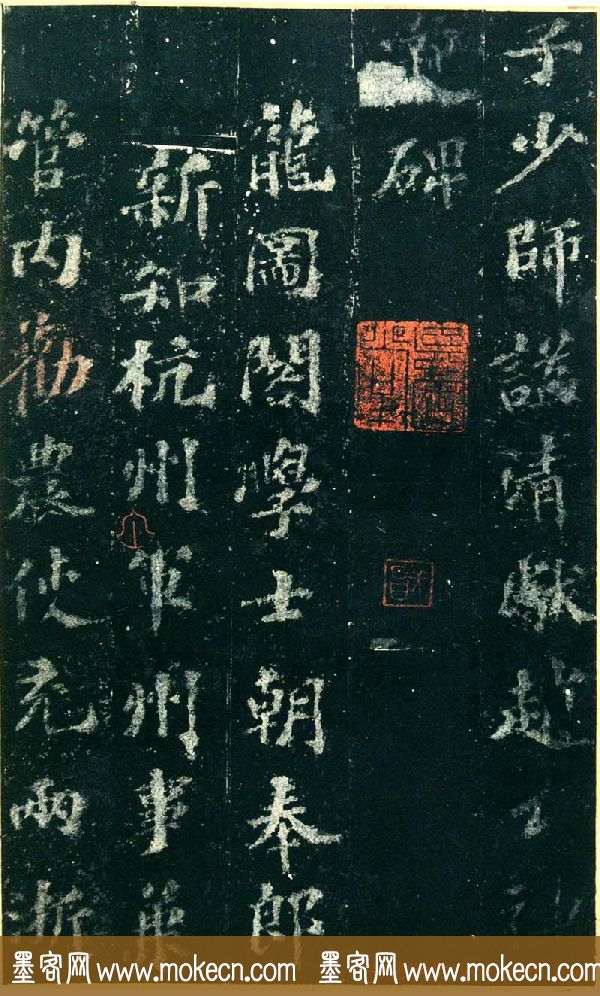 子少師諡清獻趙公神
道碑
龍圖閣學士朝奉郎
新知杭州軍州事兼
管內勸農使充兩浙
墨客网 www.mokecn.com 墨客网 www.mokecn.com